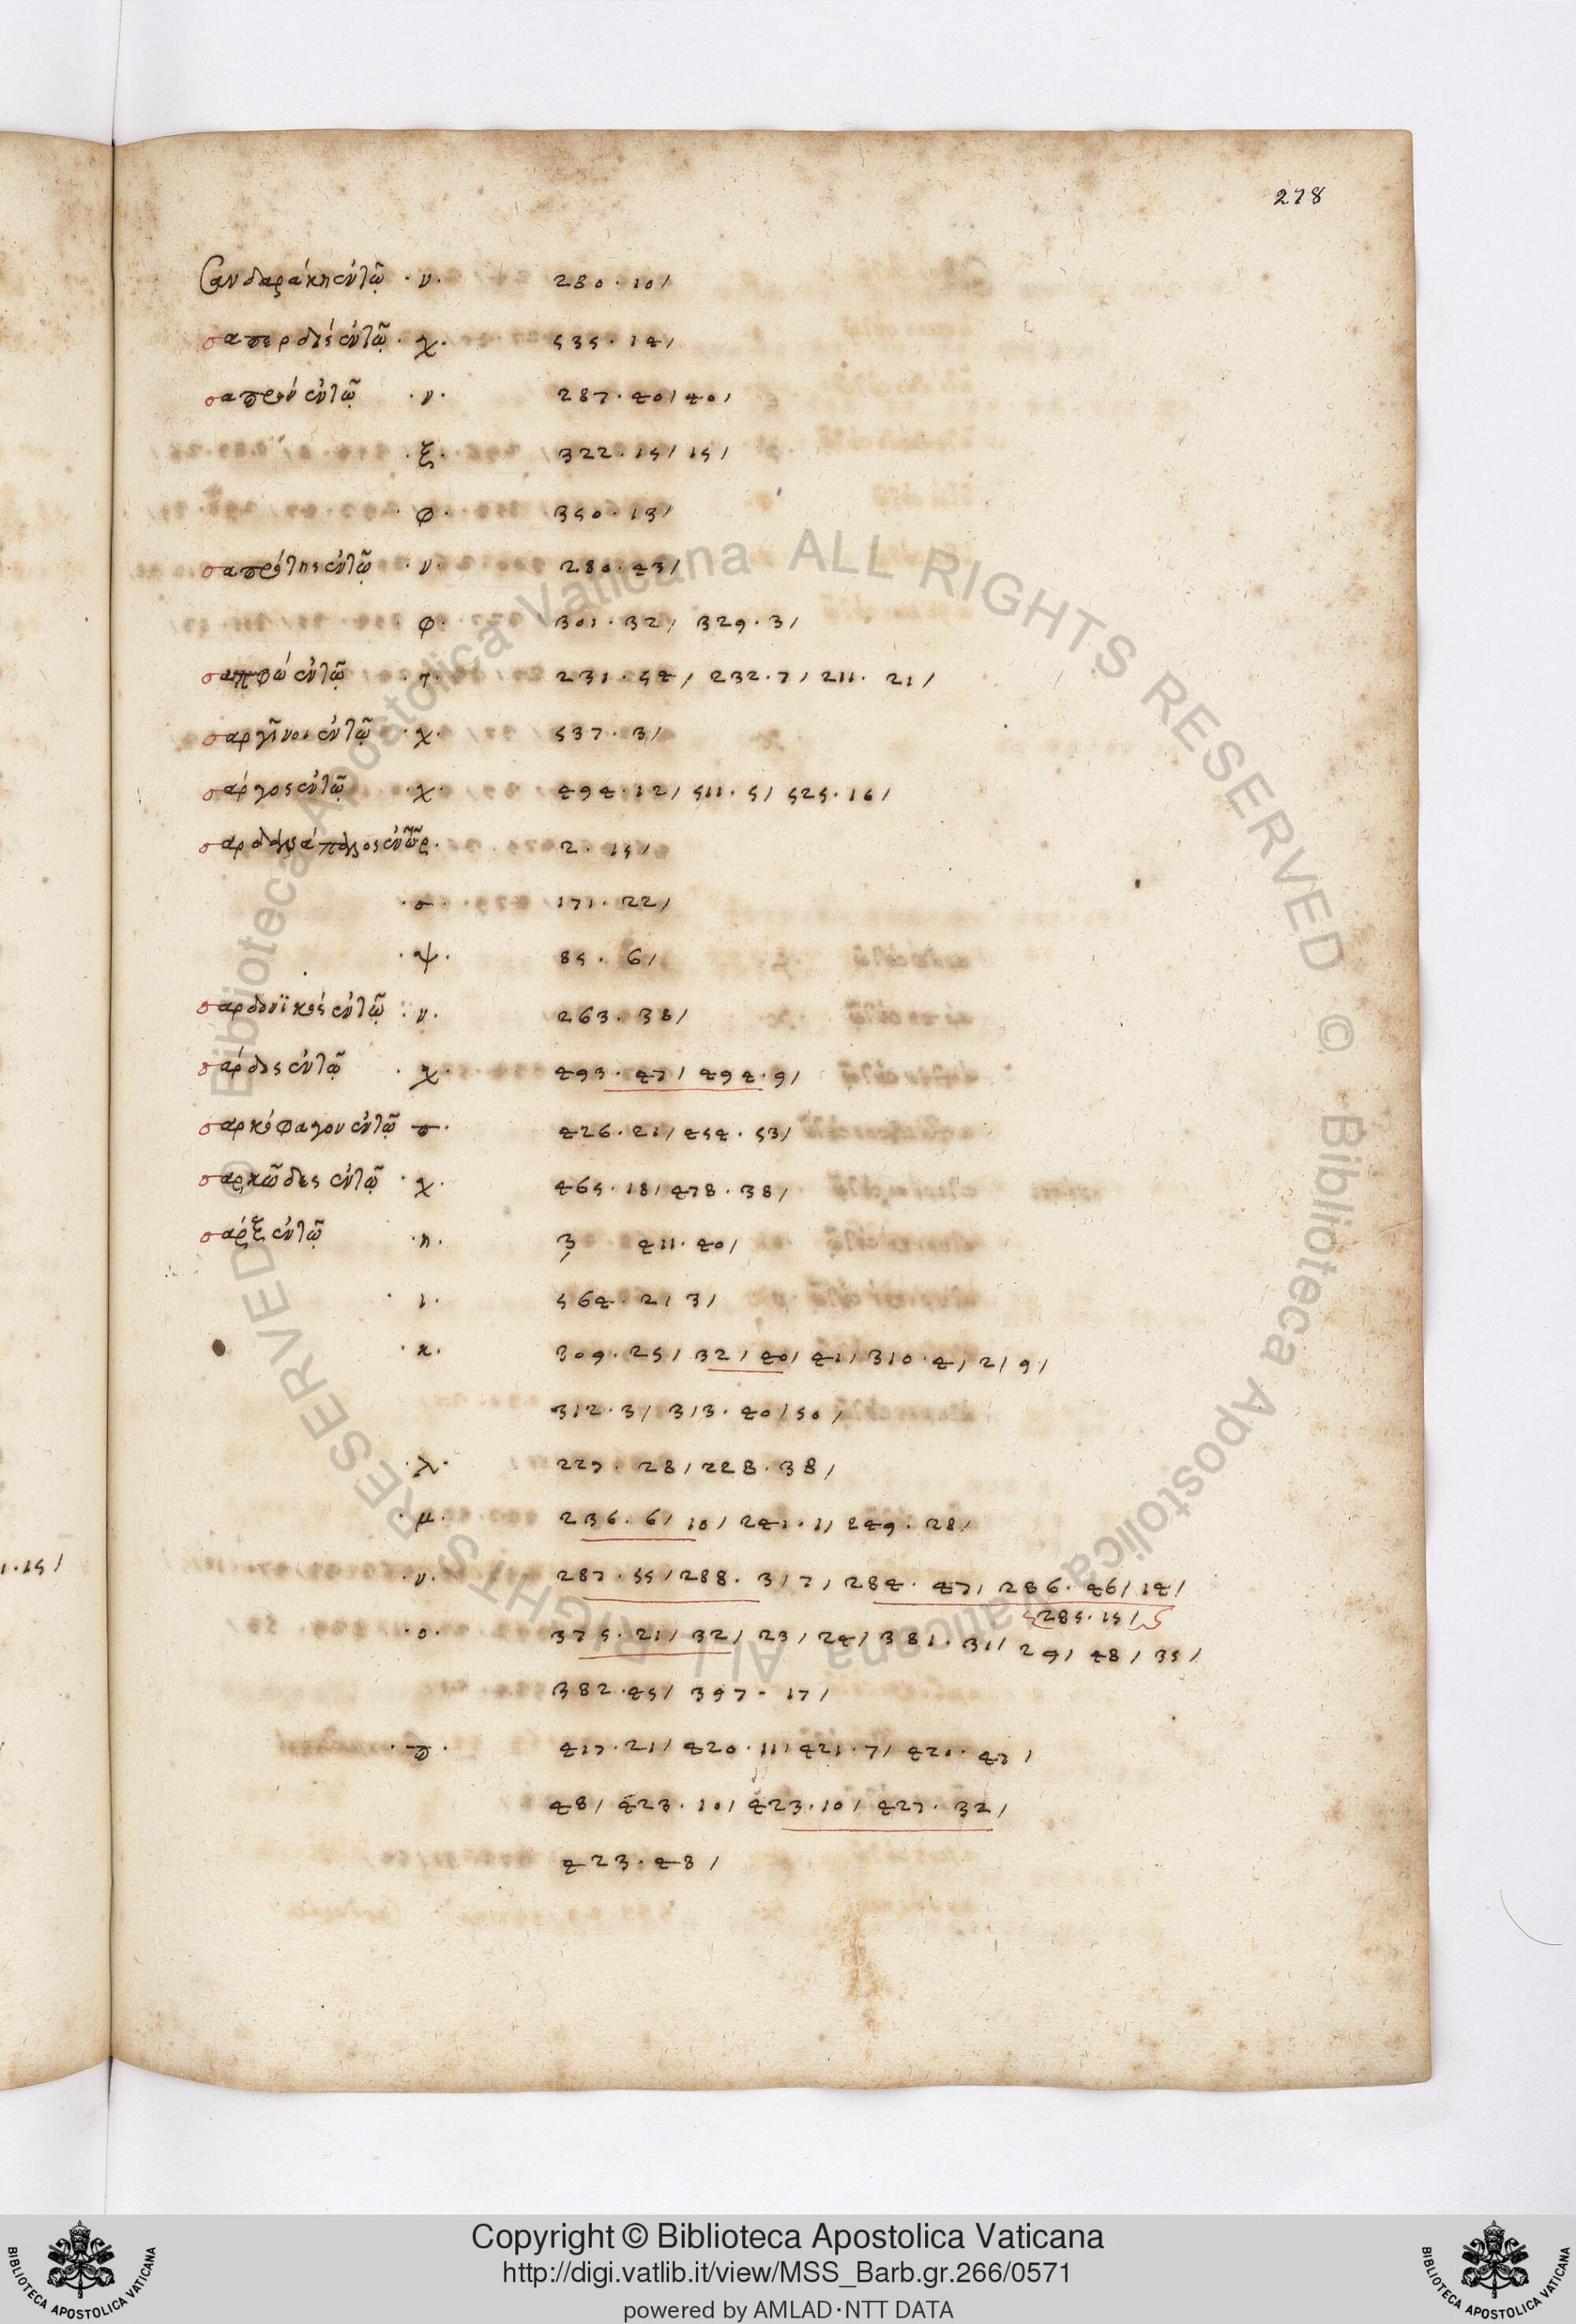 278
Σανδαράκη ἐν τῷ · ν · 280 · 10 /
σαπερδίς ἐν τῷ · χ · 535 · 14 /
σαπρόν ἐν τῷ · ν · 287 · 40 / 40 /
· ξ · 322 · 15 / 15 /
· φ · 350 · 13 /
σαπρότης ἐν τῷ · ν · 280 · 43 /
· φ · 301 · 32 / 329 · 3 /
σαπφώ ἐν τῷ · τ · 231 · 54 / 232 · 7 / 211 · 21 /
σαργῖνοι ἐν τῷ · χ · 537 · 3 /
σάργος ἐν τῷ · χ · 494 · 12 / 511 · 5 / 525 · 16 /
σαρδανάπαλος ἐν τῷ ρ · 2 · 15 /
· σ · 171 · 22 /
· ψ · 85 · 6 /
σαρδονϊκός ἐν τῷ · ν · 263 · 38 /
σάρδος ἐν τῷ · χ · 493 · 47 / 494 · 9 /
σαρκόφαγον ἐν τῷ ϖ · 426 · 21 / 454 · 53 /
σαρκῶδες ἐν τῷ · χ · 465 · 18 / 478 · 38 /
σάρξ ἐν τῷ · η · 3 411 · 40 /
· ι · 564 · 2 / 3 /
· κ · 309 · 25 / 32 / 40 / 41 / 310 · 4 / 2 / 9 /
312 · 3 / 313 · 40 / 50 /
· λ · 227 · 28 / 228 · 38 /
· μ · 236 · 6 / 10 / 241 · 1 / 249 · 28 /
1 · 15 /
· ν · 287 · 55 / 288 · 3 / 7 / 284 · 47 / 286 · 46 / 14 /
285 · 15 /
· ο · 375 · 21 / 32 / 23 / 24 / 381 · 31 / 29 / 48 / 35 /
382 · 45 / 397 · 17 /
· ϖ · 417 · 21 / 420 · 11 / 421 · 7 / 420 · 47 /
48 / 423 · 10 / 423 · 10 / 427 · 32 /
423 · 48 /
© Biblioteca Apostolica Vaticana ALL RIGHTS RESERVED © Biblioteca Apostolica Vaticana ALL RIGHTS RESERVED
Copyright © Biblioteca Apostolica Vaticana
http://digi.vatlib.it/view/MSS_Barb.gr.266/0571
powered by AMLAD·NTT DATA
BIBLIOTECA APOSTOLICA VATICANA
BIBLIOTECA APOSTOLICA VATICANA